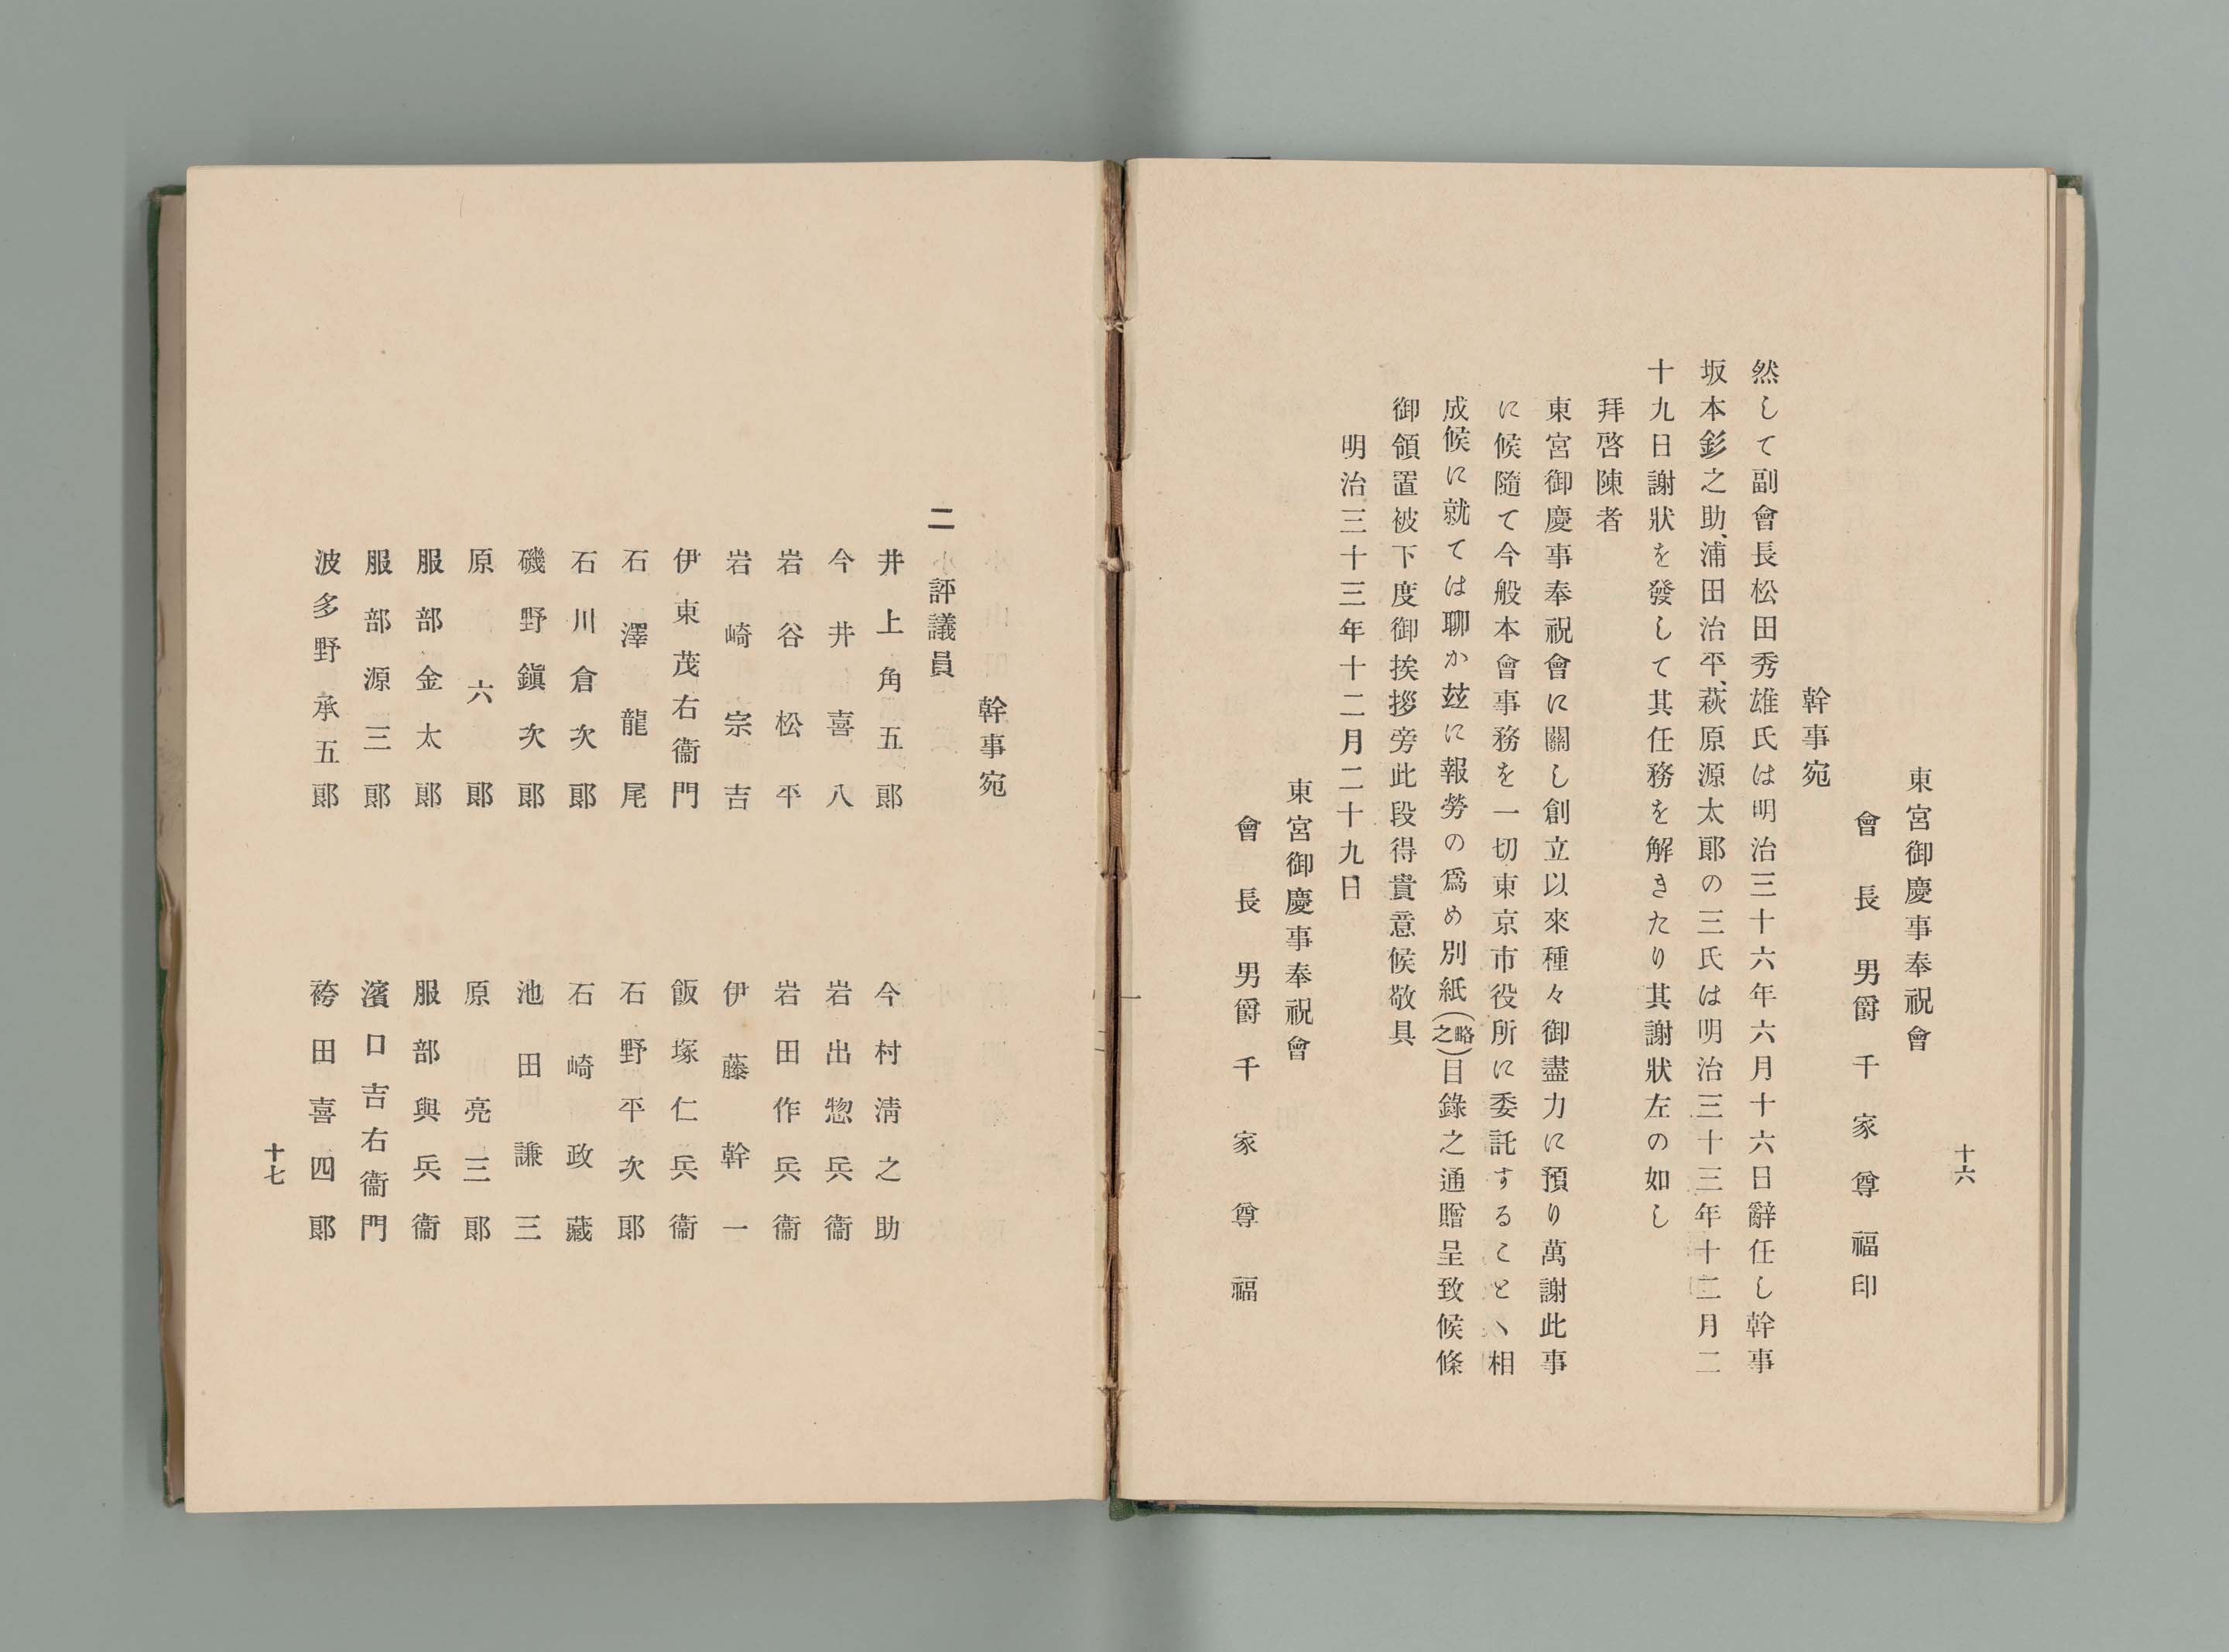 十六
東宮御慶事奉祝會
會長男爵千家尊福印
幹事宛
然して副會長松田秀雄氏は明治三十六年六月十六日辭任し幹事
坂本釤之助、浦田治平、萩原源太郞の三氏は明治三十三年十二月二
十九日謝狀を發して其任務を解きたり其謝狀左の如し
拜啓陳者
東宮御慶事奉祝會に關し創立以來種々御盡力に預り萬謝此事
に候隨て今般本會事務を一切東京市役所に委託することヽ相
成候に就ては聊か玆に報勞の爲め別紙(略之)目錄之通贈呈致候條
御領置被下度御挨拶旁此段得貴意候敬具
明治三十三年十二月二十九日
東宮御慶事奉祝會
會長男爵千家尊福
幹事宛
二 評議員
井上角五郞 今村淸之助
今井喜八 岩出惣兵衞
岩谷松平 岩田作兵衞
岩崎宗吉 伊藤幹一
伊東茂右衞門 飯塚仁兵衞
石澤龍尾 石野平次郞
石川倉次郞 石崎政藏
磯野鎭次郞 池田謙三
原六郞 原亮三郞
服部金太郞 服部與兵衞
服部源三郞 濱口吉右衞門
波多野承五郞 袴田喜四郞
十七